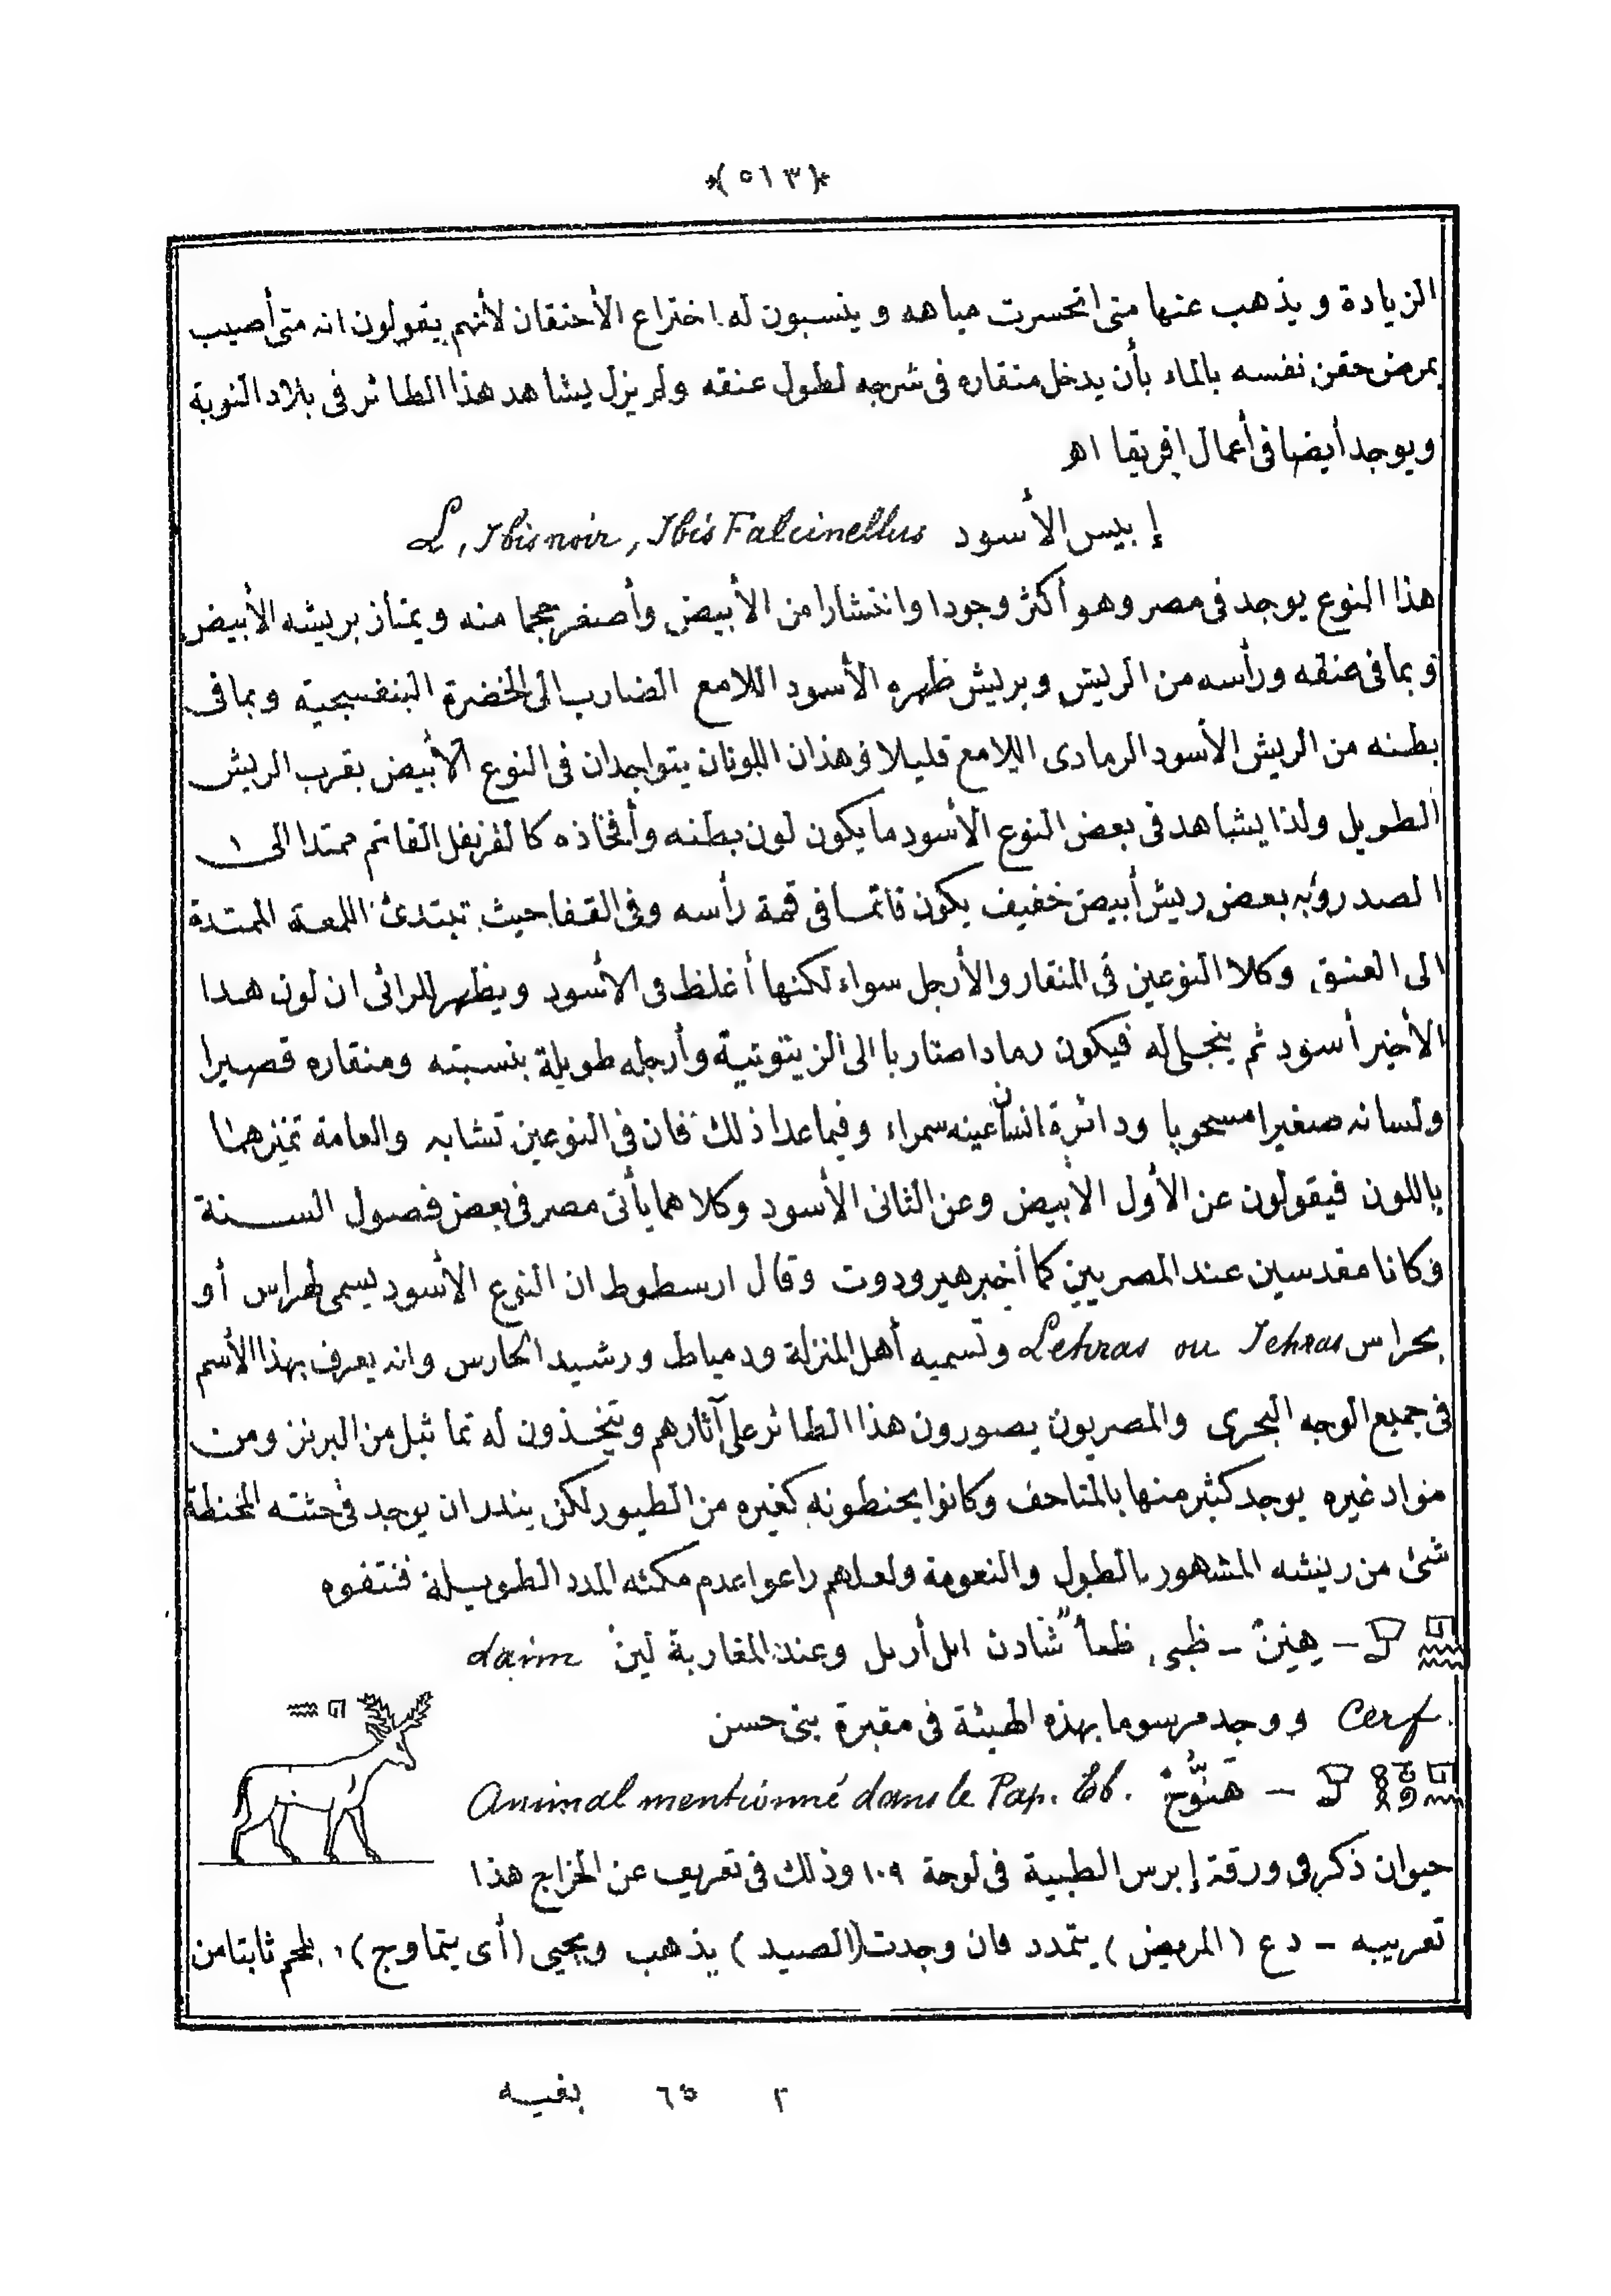 *(٥١٣)*
الزيادة ويذهب عنها متى انحسرت مياهه وينسبون له اختراع الأحتقان لأنهم يقولون انه متى أصيب
بمرض حقن نفسه بالماء بأن يدخل منقاره فى شرجه لطول عنقه ولم يزل يشاهد هذا الطائر فى بلاد النوبة
ويوجد أيضا فى أعمال افريقا اه
إبيس الأسود L, Ibis noir, Ibis Falcinellus
هذا النوع يوجد فى مصر وهو أكثر وجودا وانتشارا من الأبيض وأصغر حجما منه ويمتاز بريشه الأبيض
وبما فى عنقه ورأسه من الريش وبريش ظهره الأسود اللامع الضارب الى الخضرة البنفسجية وبما فى
بطنه من الريش الأسود الرمادى اللامع قليلا وهذان اللونان يتواجدان فى النوع الأبيض بقرب الريش
الطويل ولذا يشاهد فى بعض النوع الأسود ما يكون لون بطنه وأفخاذه كالقرنفل القاتم ممتدا الى
الصدر وبه بعض ريش أبيض خفيف يكون قائما فى قمة رأسه وفى القفا حيث تبتدئ اللمعة الممتدة
الى العنق وكلا النوعين فى المنقار والأرجل سواء لكنها أغلظ فى الأسود ويظهر للرائى ان لون هذا
الأخير أسود ثم ينجلى له فيكون رمادا ضاربا الى الزيتونية وأرجله طويلة بنسبته ومنقاره قصيرا
ولسانه صغيرا مسحوبا ودائرة انسان عينه سمراء وفيما عدا ذلك فان فى النوعين تشابه والعامة تميزهما
باللون فيقولون عن الأول الأبيض وعن الثانى الأسود وكلاهما يأتى مصر فى بعض فصول السنة
وكانا مقدسين عند المصريين كما أخبر هيرودوت وقال ارسطوط ان النوع الأسود يسمى لهراس أو
يحراس Lehras ou Jehras وتسميه أهل المنزلة ودمياط ورشيد الحارس وانه يعرف بهذا الأسم
فى جميع الوجه البحرى والمصريون يصورون هذا الطائر على آثارهم ويتخذون له تماثيل من البرنز ومن
مواد غيره يوجد كثير منها بالمتاحف وكانوا يحنطونه كغيره من الطيور لكن يندر ان يوجد فى جثته المحنطة
شئ من ريشه المشهور بالطول والنعومة ولعلهم راعوا عدم مكثه المدد الطويلة فنتفوه
– هِنِنْ – ظبى, شادن ايل أريل وعند المغاربة لين daim
Cerf. ووجد مرسوما بهذه الهيئة فى مقبرة بنى حسن
– Animal mentionné dans le Pap. Eb.
حيوان ذكر فى ورقة إبرس الطبية فى لوحة ١٠٩ وذلك فى تعريف عن الخراج هذا
تعريبه – دع (المريض) يتمدد فان وجدت (الصيد) يذهب ويجيى (أى يتماوج) بلحم ثابتا من
٢ ٦٥ بغيه